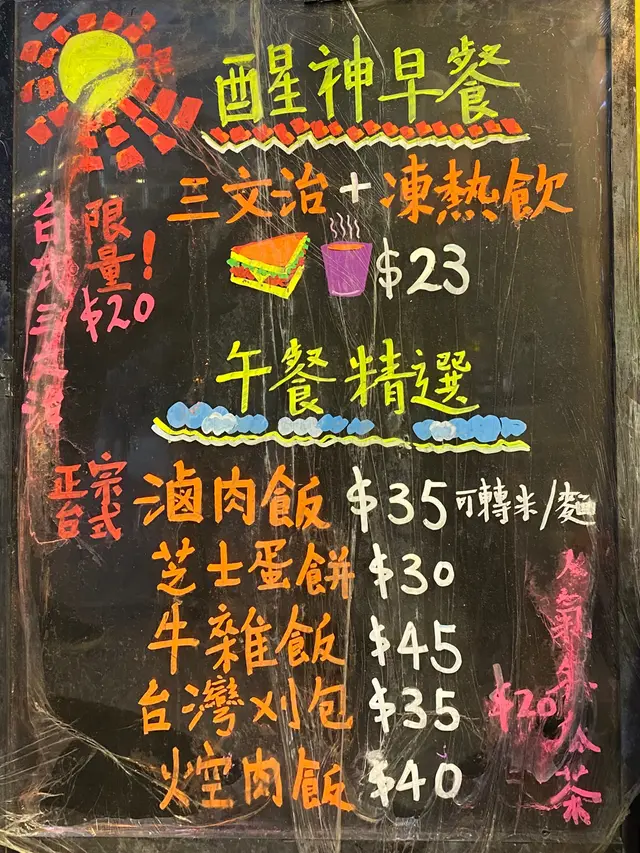 醒神早餐
三文治+凍熱飲
$23
限量!
$20
午餐精選
正宗
台式
滷肉飯 $35 可轉米/麵
芝士蛋餅 $30
牛雜飯 $45
台灣刈包 $35
焢肉飯 $40
人氣冬瓜茶
$20